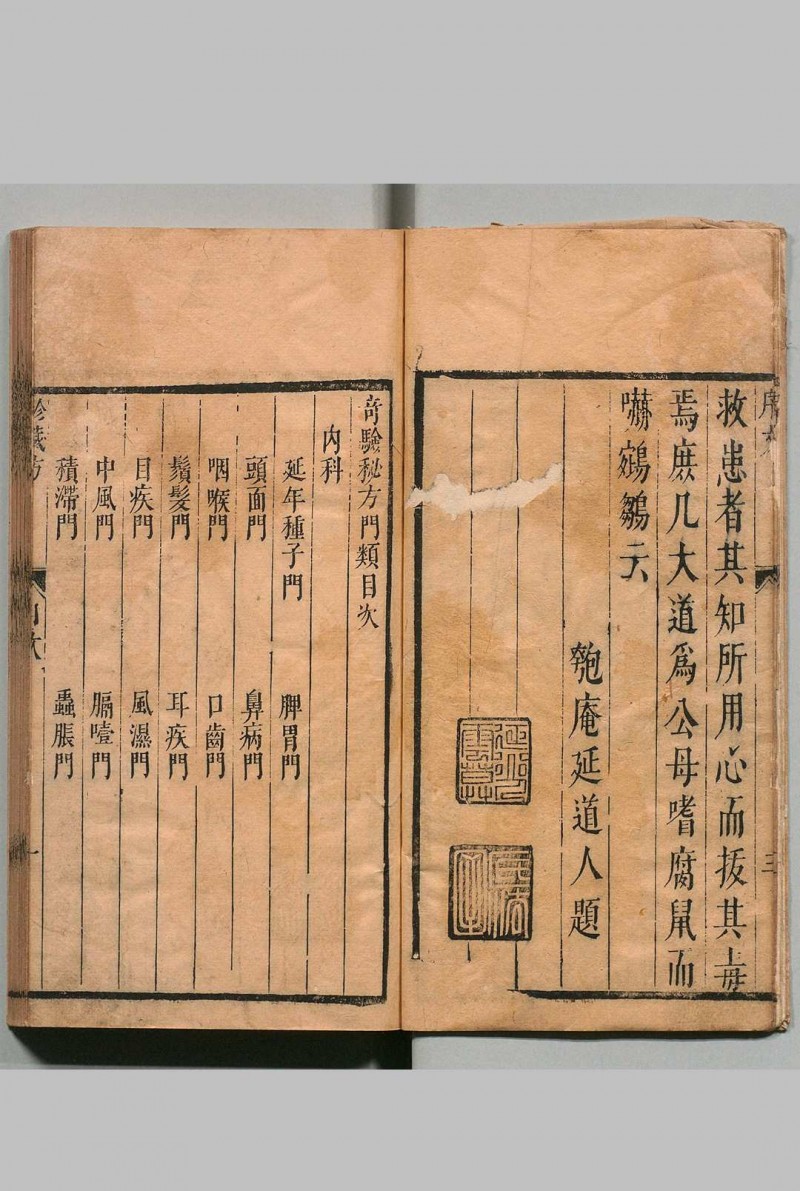 救患者其知所用心而拔其毒
焉庶几大道為公母嗜腐鼠而
嚇鵷鶵云
匏庵延道人題
序
三
奇驗秘方門類目次
內科
延年種子門 脾胃門
頭面門 鼻病門
咽喉門 口齒門
鬚髮門 耳疾門
目疾門 風濕門
中風門 膈噎門
積滯門 蟲脹門
珍藏方
目次
一